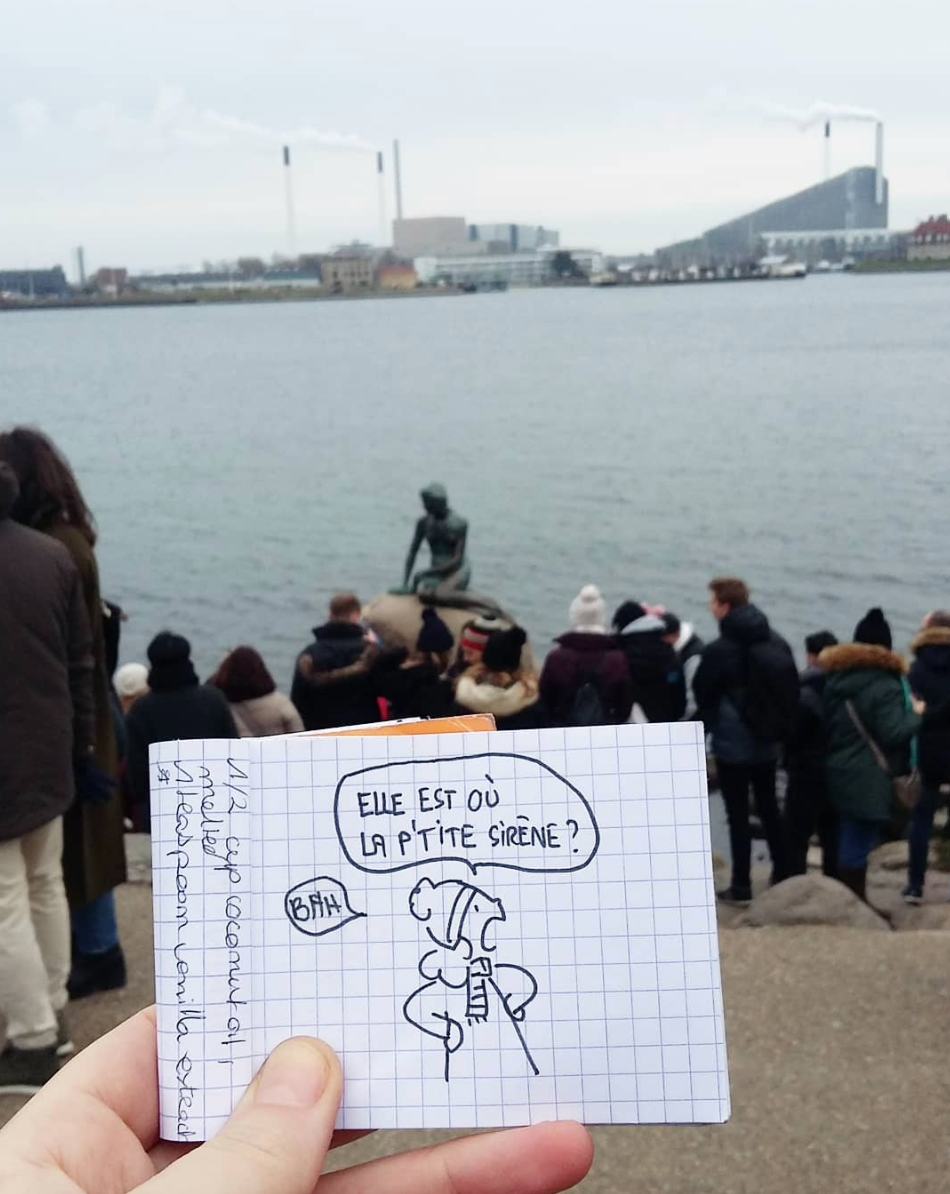 ELLE EST OÙ
LA P'TITE SIRÈNE ?
BAH
1/2 cup coconut oil,
melted
* 1 teaspoon vanilla extract